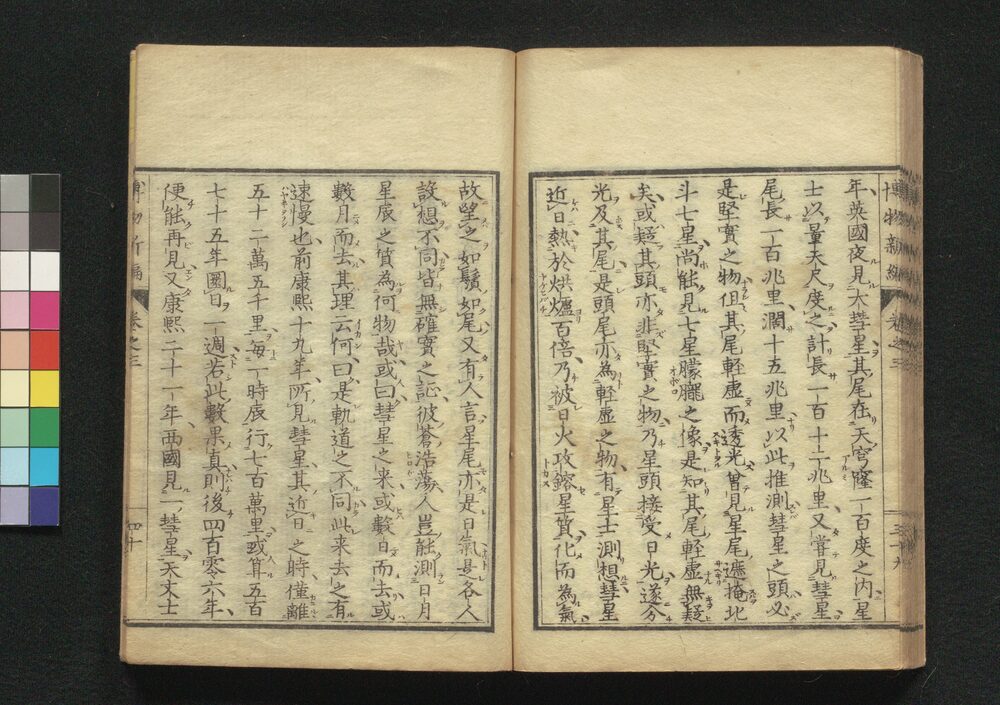 博物新編 卷之三 三十九
年、英國夜見大彗星其尾在天穹窿一百度之内、星
士以量天尺度之、計長一百十二兆里、又嘗見彗星
尾長一百兆里、濶十五兆里、以此推測彗星之頭必
是堅實之物但其尾輕虚而透光曽見星尾遮掩北
斗七星尚能見七星朦朧之像是知其尾輕虚無疑
矣或疑其頭亦非堅實之物乃星頭接受日光遂分
光及其尾是頭尾亦為輕虚之物有星士測想彗星
近日熱於烘爐百倍、乃被日火攻鎔星質化而為氣
故望之如鬚如尾又有人言星尾亦是日氣是各人
設想不同皆無確實之証彼蒼浩蕩人豈能測日月
星辰之質為何物哉或曰彗星之来或數日而去或
數月而去其理云何曰是軌道之不同此来去之有
速慢也前康熙十九年所見彗星其近日之時僅離
五十二萬五千里毎一時辰行七百萬里或算五百
七十五年圜日一週若此數果真則後四百零六年、
便能再見又康熙二十一年、两國見一彗星天文士
博物新編 卷之三 四十